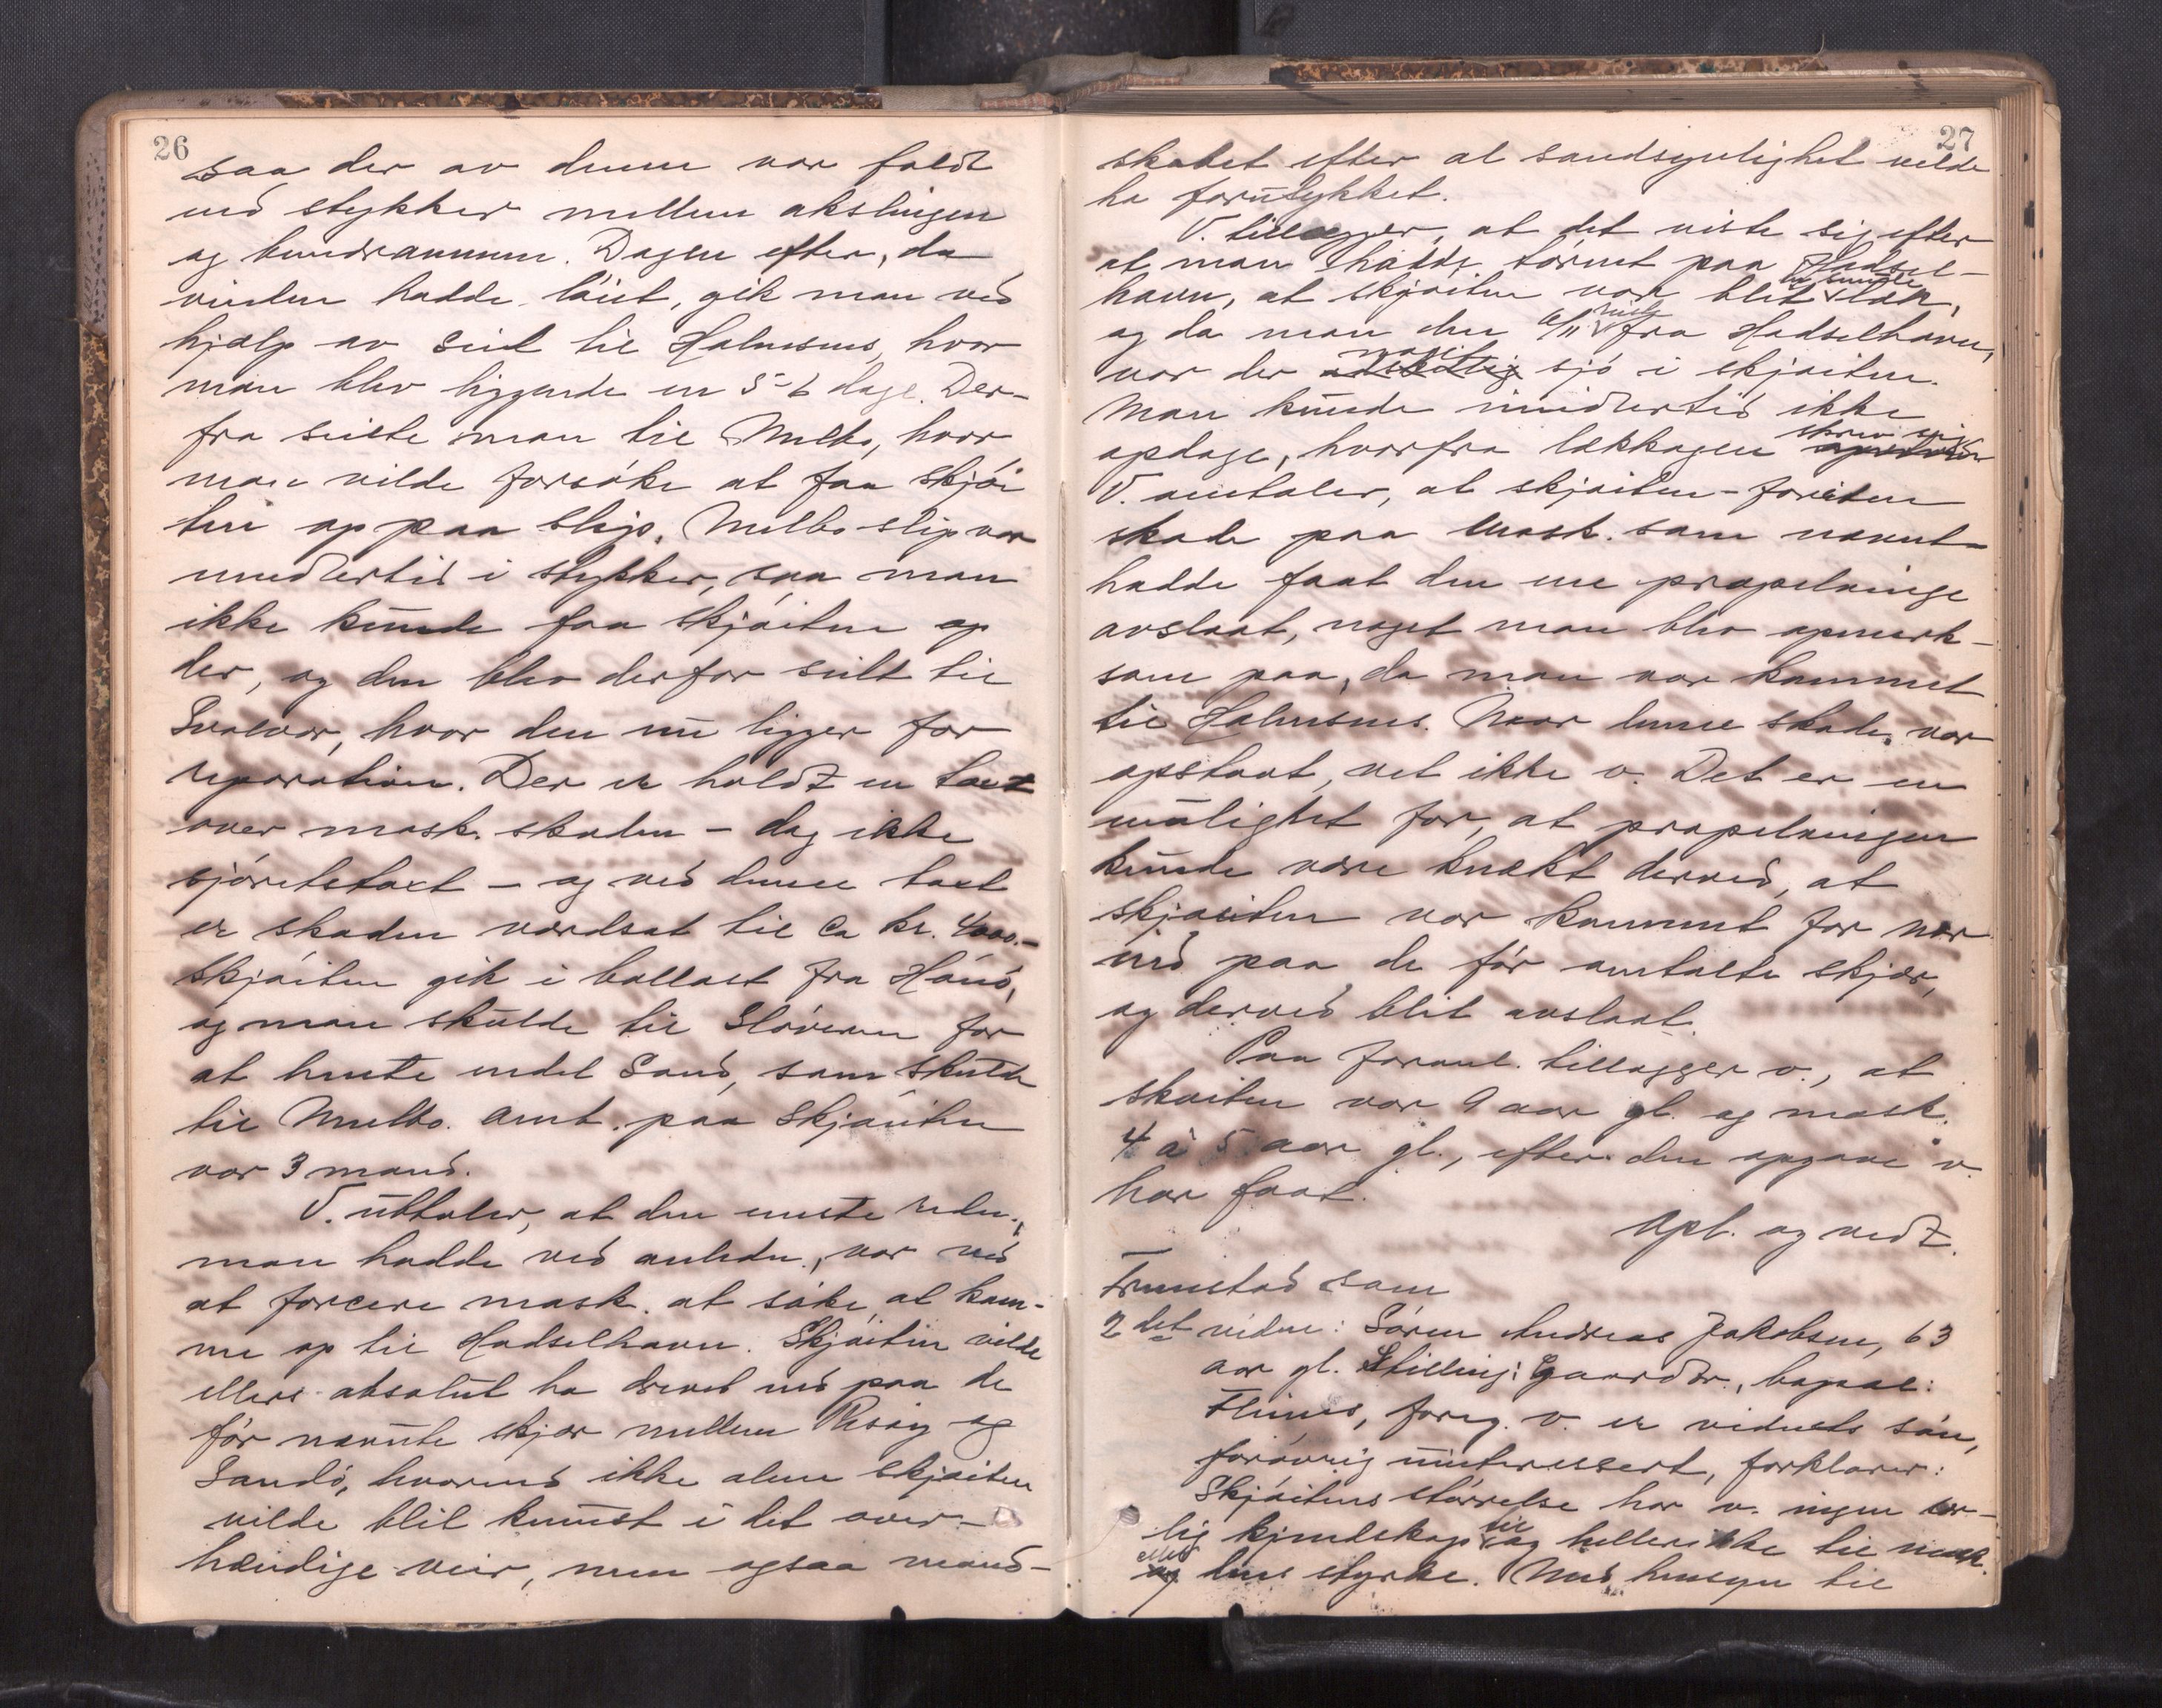 26
saa der av denne var faldt
ned stykker mellem akslingen
og bundrammen. Dagen efter, da
vinden hadde löiet, gik man ved
hjælp av seil til Holmsnes, hvor
man blev liggende en 5-6 dage. Der-
fra seilte man til Melbo, hvor
man vilde forsöke at faa skjöi
ten op paa slip. Melbo slip var
imidlertid i stykker, saa man
ikke kunde faa skjöiten op
der, og den blev derfor seilt til
Svolvær, hvor den nu ligger for
reparation. Der er holdt en taxt
over mask. skaden - dog ikke
sjöretstaxt - og ved denne taxt
er skaden værdsat til ca kr. 4000.-
Skjöiten gik i ballast fra Hanö,
og man skulde til Slöveren for
at hente endel Sand, som skulde
til Melbo. Amb. paa Skjöiten
var 3 mand.
V. uttaler, at den eneste redn.,
man hadde ved anledn., var ved
at forcere mask. at söke at kom-
me op til Hadselhavn. Skjöiten vilde
ellers absolut ha drevet ned paa de
för nævnte skjær mellem Risöy og
Sandö, hvorved ikke alene skjöiten
vilde blit knust i det over-
hændige veir, men ogsaa mand-
27
skabet efter al sandsynlighet vilde
ha forulykket.
V. tillægger, at det viste sig efter
at man hadde törnet paa Hadsel-
havn, at skjöiten var blit læk,
og da man den 6/11 seilte fra Hadselhavn,
var der meget sjö i skjöiten.
Man kunde imidlertid ikke
opdage, hvorfra lækkagen skrev sig
V. omtaler, at skjöiten - foruten
skade paa mask. som nævnt -
hadde faat den ene propelvinge
avslaat, noget man blev opmerk-
som paa, da man var kommet
til Holmsnes. Naar denne skade var
opstaat, vet ikke v. Det er en
mulighet for, at propelvingen
kunde være knækt derved, at
skjöiten var kommet for nær
ind paa de för omtalte skjær,
og derved blit avslaat.
Paa foranl. tillægger v., at
sköiten var 9 aar gl. og mask.
4 à 5 aar gl., efter den opgave v.
har faat.
Opl. og vedt.
Fremstod som
2det vidne: Sören Andreas Jakobsen, 63
aar gl. Stilling: Gaardbr., bopæl:
Flines, foreg. v. er vidnets sön,
forövrig uinteressert, forklarer:
Skjöitens störrelse har v. ingen sær-
lig kjendskap til og heller ikke til mask.
eller dens styrke. Med hensyn til